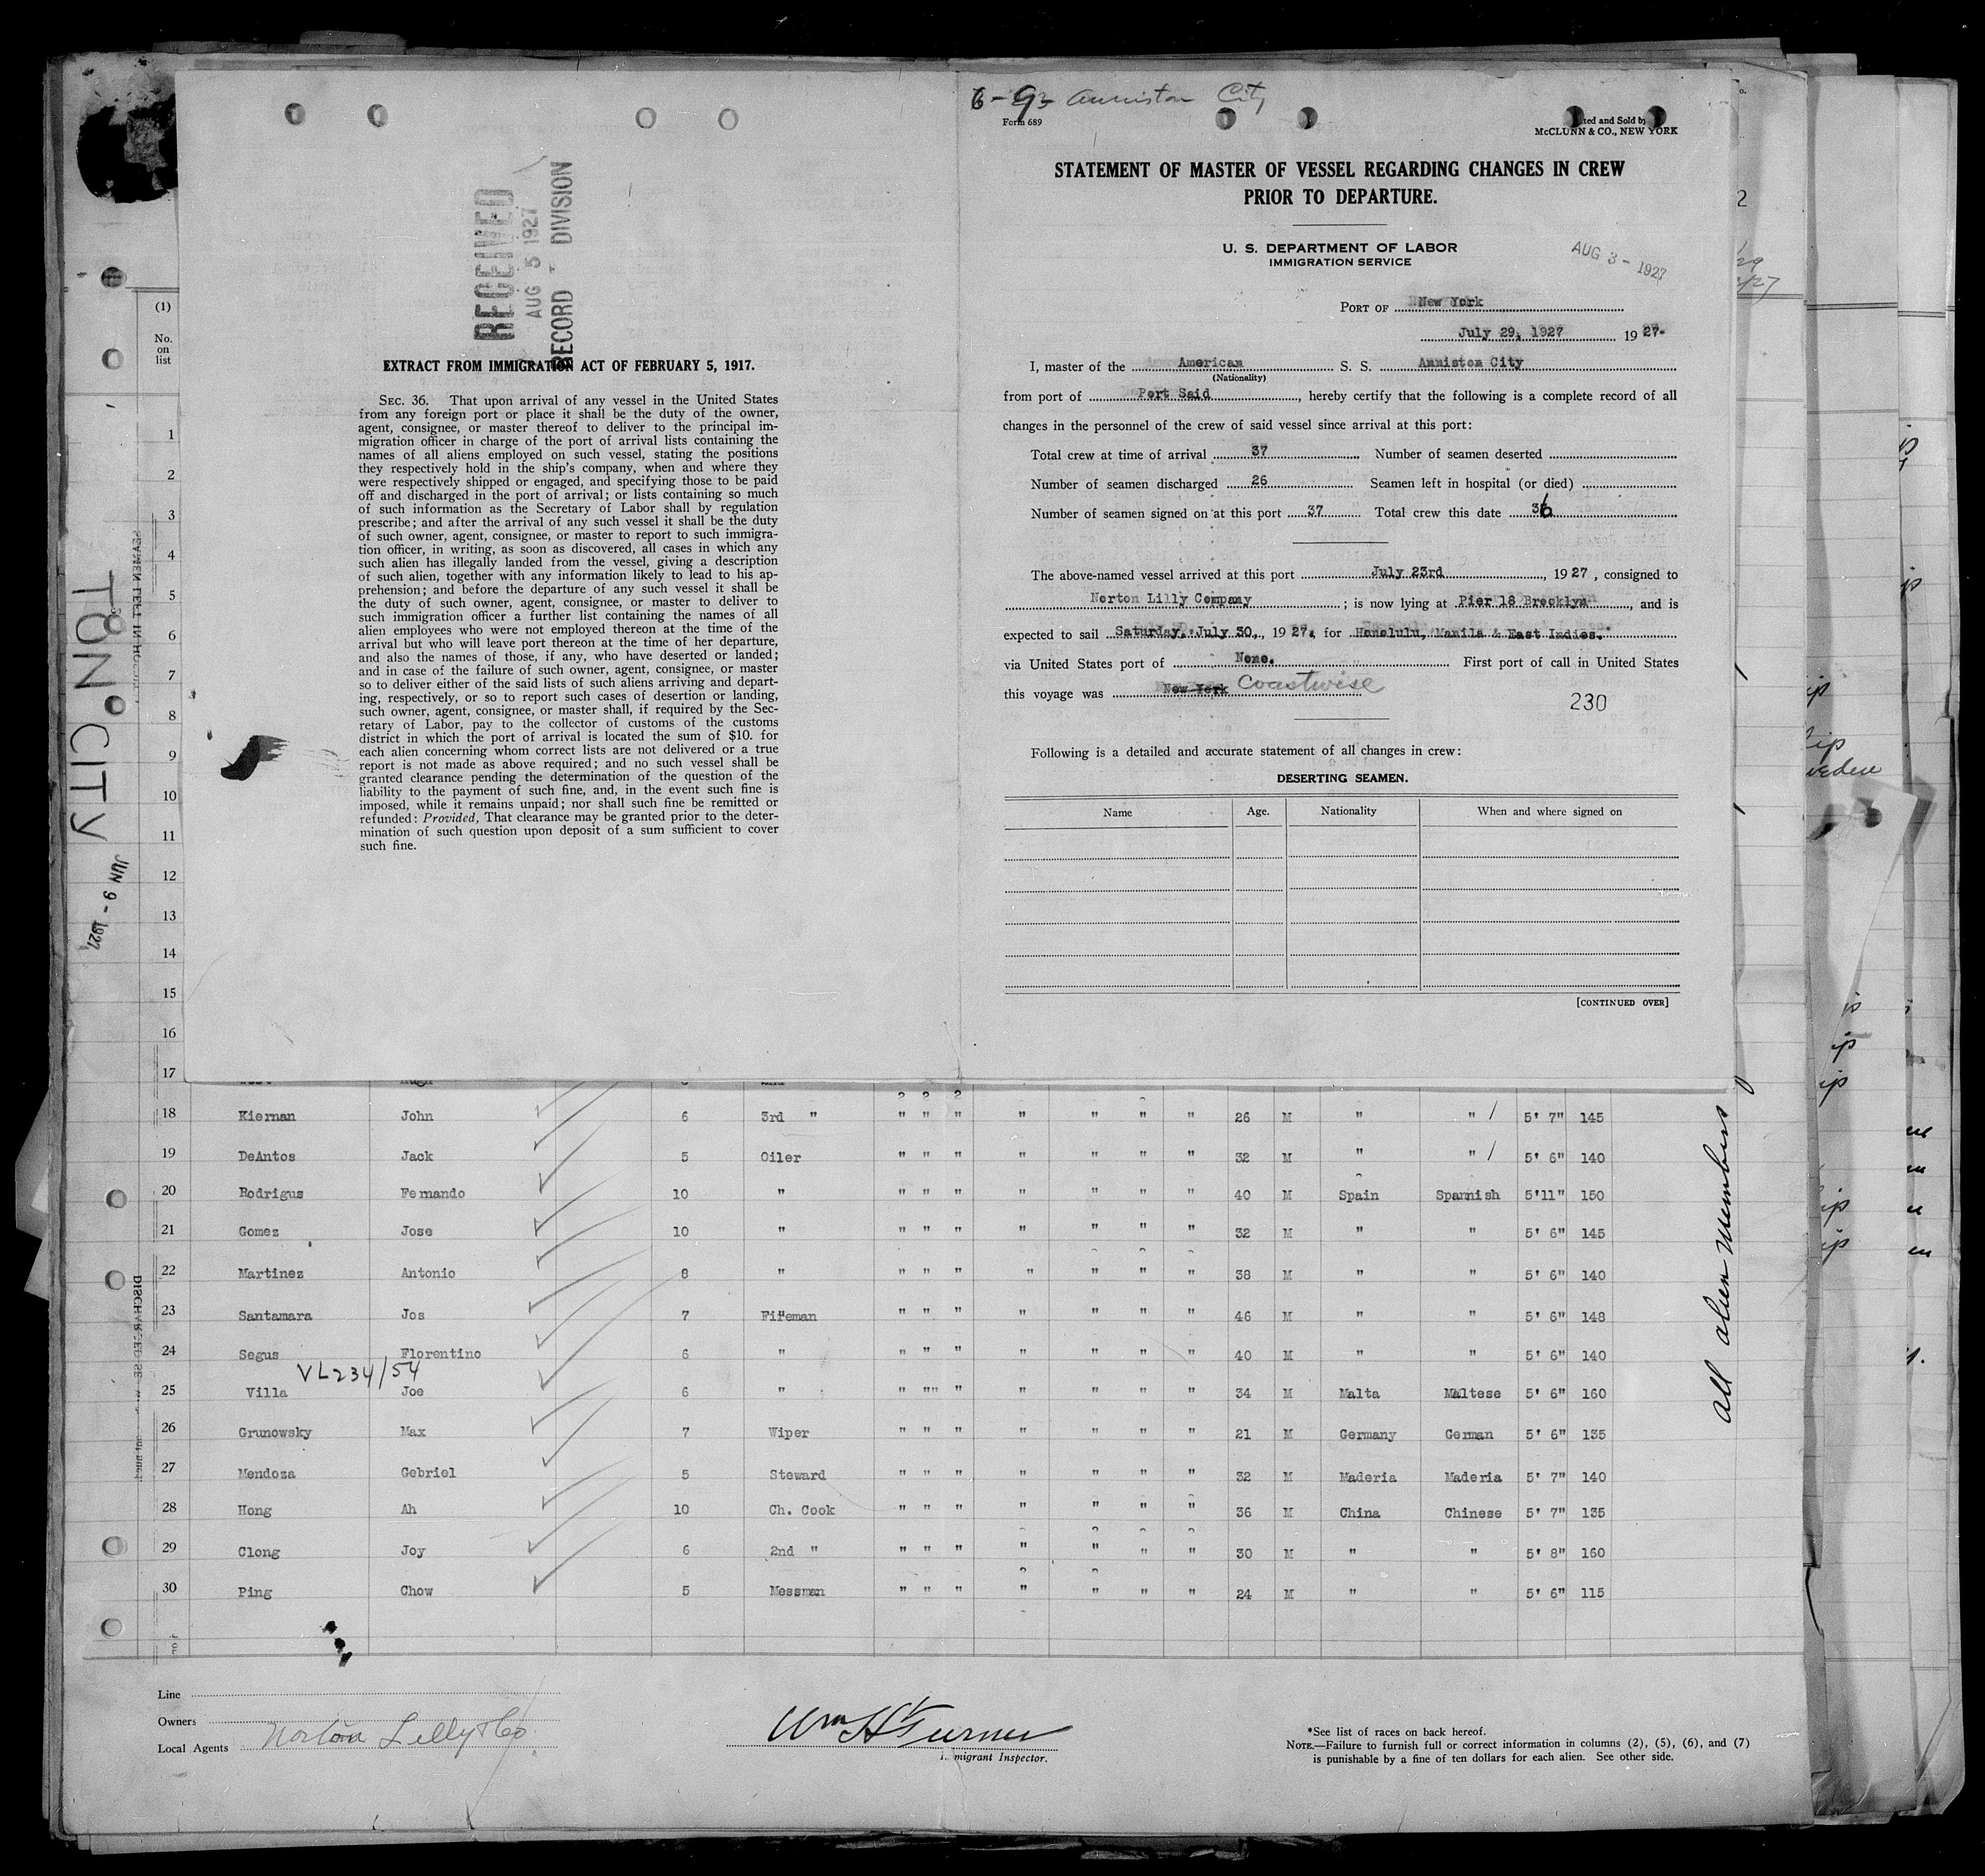 RECEIVED
AUG 5 1927
RECORD DIVISION
EXTRACT FROM IMMIGRATION ACT OF FEBRUARY 5, 1917.
SEC. 36. That upon arrival of any vessel in the United States
from any foreign port or place it shall be the duty of the owner,
agent, consignee, or master thereof to deliver to the principal im-
migration officer in charge of the port of arrival lists containing the
names of all aliens employed on such vessel, stating the positions
they respectively hold in the ship's company, when and where they
were respectively shipped or engaged, and specifying those to be paid
off and discharged in the port of arrival; or lists containing so much
of such information as the Secretary of Labor shall by regulation
prescribe; and after the arrival of any such vessel it shall be the duty
of such owner, agent, consignee, or master to report to such immigra-
tion officer, in writing, as soon as discovered, all cases in which any
such alien has illegally landed from the vessel, giving a description
of such alien, together with any information likely to lead to his ap-
prehension; and before the departure of any such vessel it shall be
the duty of such owner, agent, consignee, or master to deliver to
such immigration officer a further list containing the names of all
alien employees who were not employed thereon at the time of the
arrival but who will leave port thereon at the time of her departure,
and also the names of those, if any, who have deserted or landed;
and in case of the failure of such owner, agent, consignee, or master
so to deliver either of the said lists of such aliens arriving and depart-
ing, respectively, or so to report such cases of desertion or landing,
such owner, agent, consignee, or master shall, if required by the Sec-
retary of Labor, pay to the collector of customs of the customs
district in which the port of arrival is located the sum of $10. for
each alien concerning whom correct lists are not delivered or a true
report is not made as above required; and no such vessel shall be
granted clearance pending the determination of the question of the
liability to the payment of such fine, and, in the event such fine is
imposed, while it remains unpaid; nor shall such fine be remitted or
refunded: Provided, That clearance may be granted prior to the deter-
mination of such question upon deposit of a sum sufficient to cover
such fine.
6-93 Anniston City
Form 689
ted and Sold by
McCLUNN & CO., NEW YORK
STATEMENT OF MASTER OF VESSEL REGARDING CHANGES IN CREW
PRIOR TO DEPARTURE.
U. S. DEPARTMENT OF LABOR
IMMIGRATION SERVICE
AUG 3 - 1927
PORT OF New York
July 29, 1927 1927.
I, master of the American S. S. Anniston City
(Nationality)
from port of Port Said, hereby certify that the following is a complete record of all
changes in the personnel of the crew of said vessel since arrival at this port:
Total crew at time of arrival 37 Number of seamen deserted
Number of seamen discharged 26 Seamen left in hospital (or died)
Number of seamen signed on at this port 37 Total crew this date 36
The above-named vessel arrived at this port July 23rd, 1927, consigned to
Norton Lilly Company; is now lying at Pier 18 Brooklyn, and is
expected to sail Saturday, July 30, 1927, for Honolulu, Manila & East Indies.
via United States port of None. First port of call in United States
this voyage was New York Coastwise
230
Following is a detailed and accurate statement of all changes in crew:
DESERTING SEAMEN.
Name Age. Nationality When and where signed on
[CONTINUED OVER]
TON CITY
JUN 9 - 1927
(1)
No.
on
list
1
2
3
4
5
6
7
8
9
10
11
12
13
14
15
16
17
18 Kiernan John 6 3rd " " " " " " " " 26 M " " 5' 7" 145
19 DeAntos Jack 5 Oiler " " " " " " " 32 M " " 5' 6" 140
20 Rodrigus Fernando 10 " " " " " " " " 40 M Spain Spannish 5'11" 150
21 Gomez Jose 10 " " " " " " " " 32 M " " 5' 6" 145
22 Martinez Antonio 8 " " " " " " " " 38 M " " 5' 6" 140
23 Santamara Jos 7 Fireman " " " " " " " 46 M " " 5' 6" 148
24 Segus Florentino 6 " " " " " " " " 40 M " " 5' 6" 140
VL234/54
25 Villa Joe 6 " " "" " " " " " 34 M Malta Maltese 5' 6" 160
26 Grunowsky Max 7 Wiper " " " " " " " 21 M Germany German 5' 6" 135
27 Mendoza Gebriel 5 Steward " " " " " " " 32 M Maderia Maderia 5' 7" 140
28 Hong Ah 10 Ch. Cook " " " " " " " 36 M China Chinese 5' 7" 135
29 Clong Joy 6 2nd " " " " " " " " 30 M " " 5' 8" 160
30 Ping Chow 5 Messman " " " " " " " 24 M " " 5' 6" 115
All alien Members
Line
Owners
Local Agents Norton Lilly & Co.
Wm H Turner
Immigrant Inspector.
*See list of races on back hereof.
NOTE.—Failure to furnish full or correct information in columns (2), (5), (6), and (7)
is punishable by a fine of ten dollars for each alien. See other side.